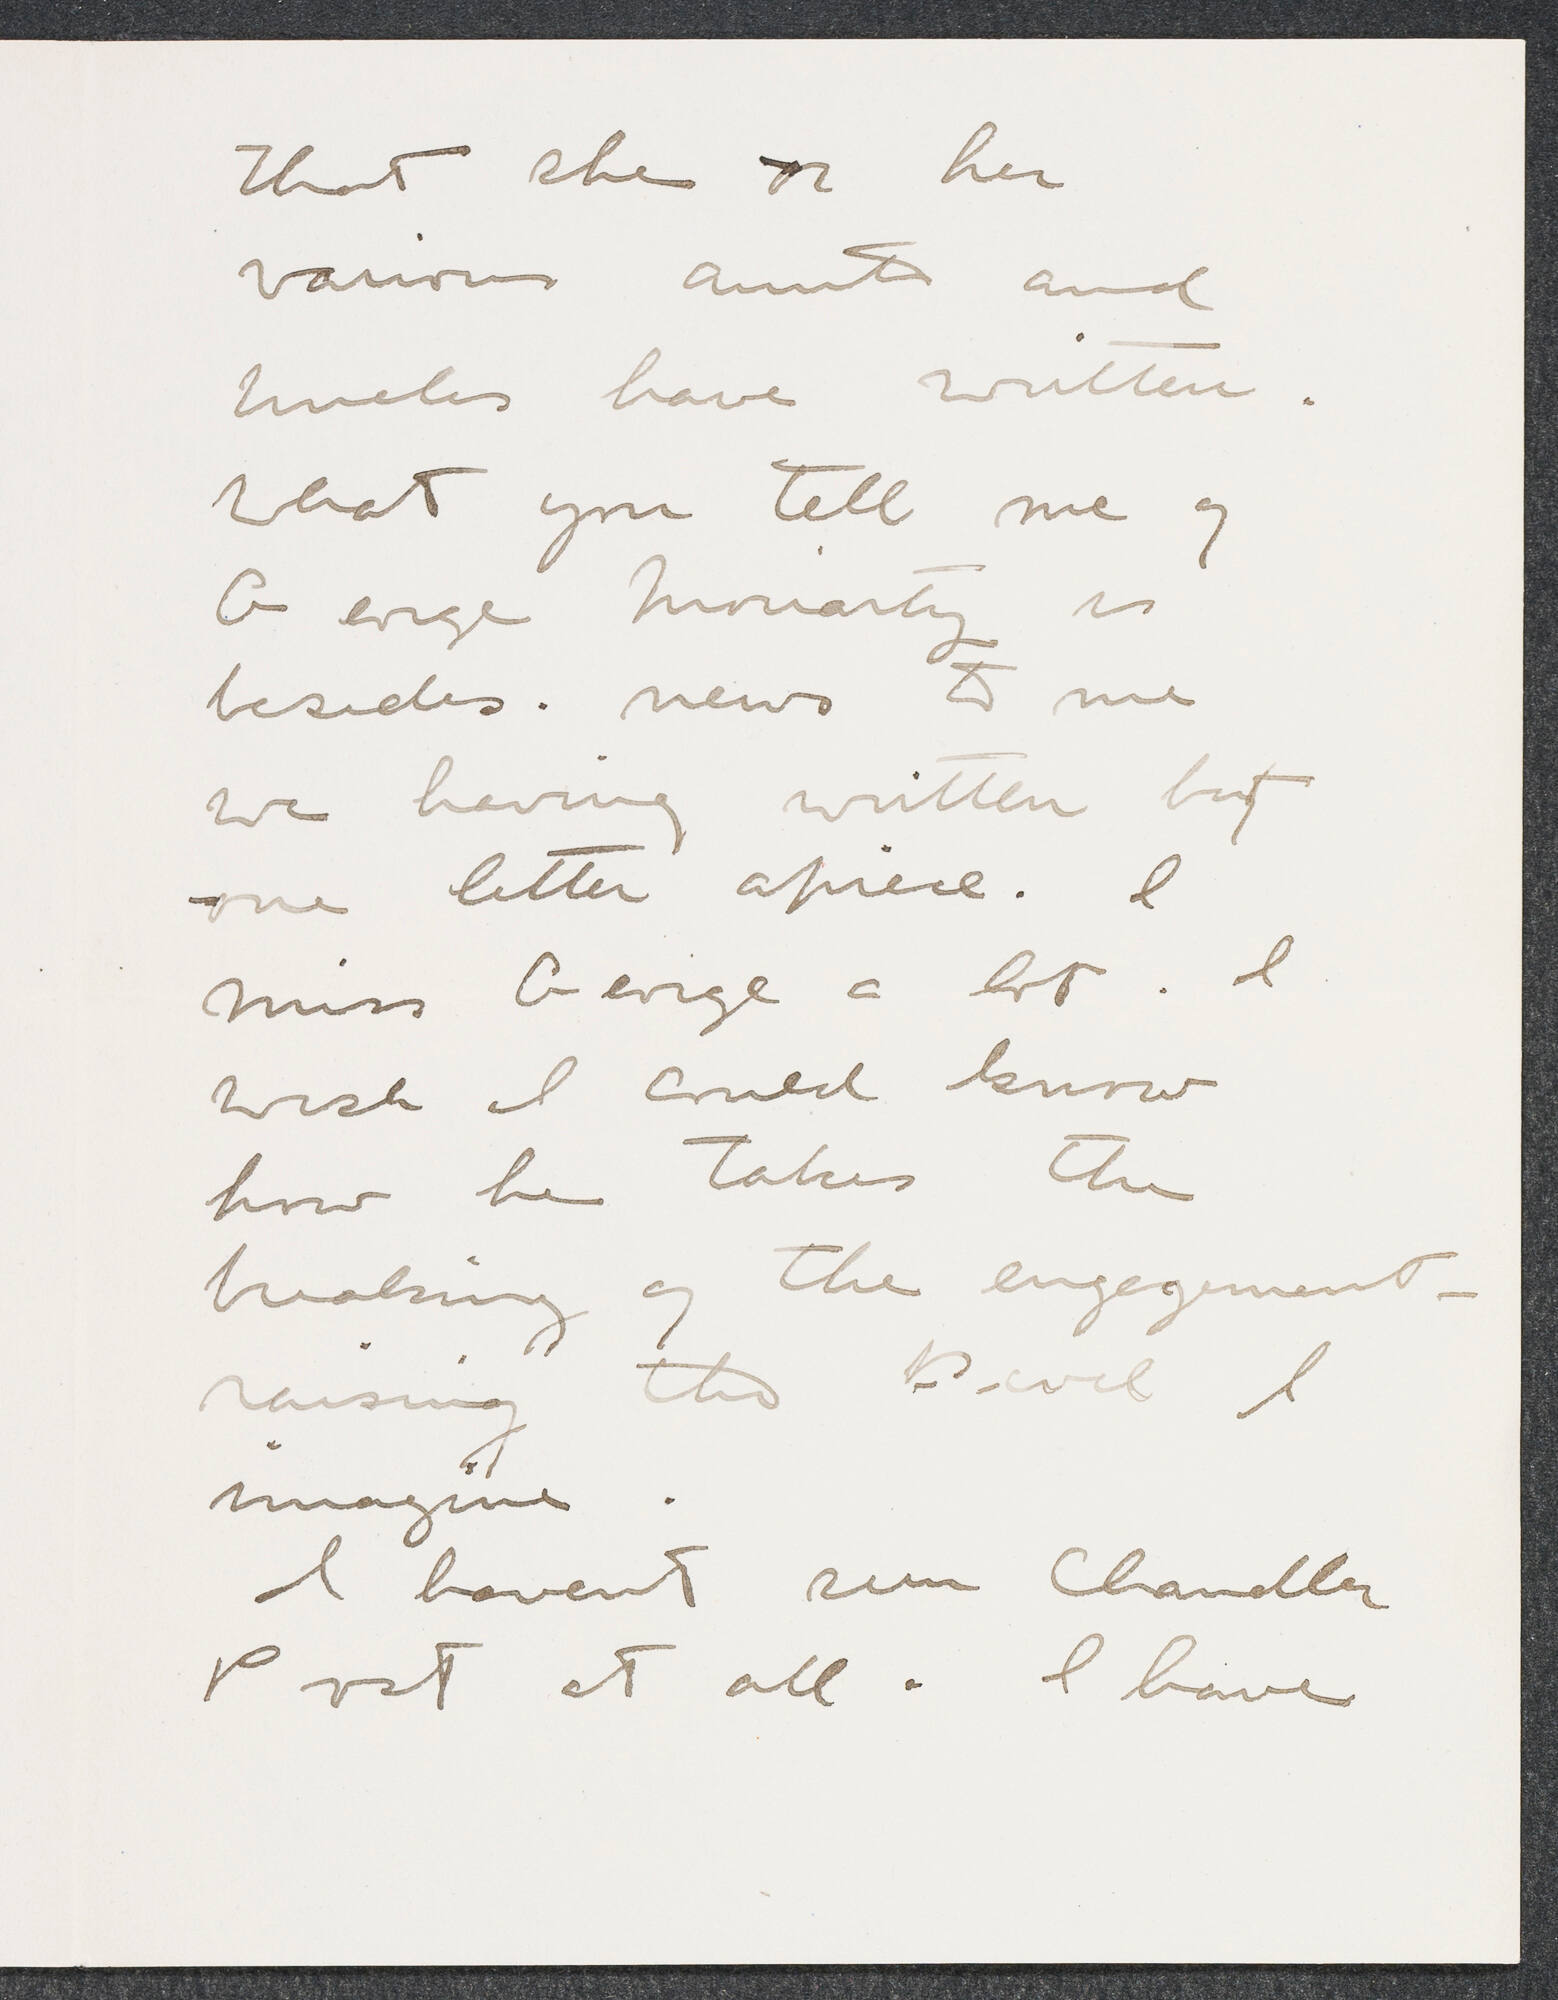 that she or her
various aunts and
uncles have written.
What you tell me of
George Moriarty is
besides. news to me
we having written but
one letter apiece. I
miss George a lot. I
wish I could know
how he takes the
breaking of the engagement -
raising the I
imagine.
I havent seen Chandler
Post at all. I have